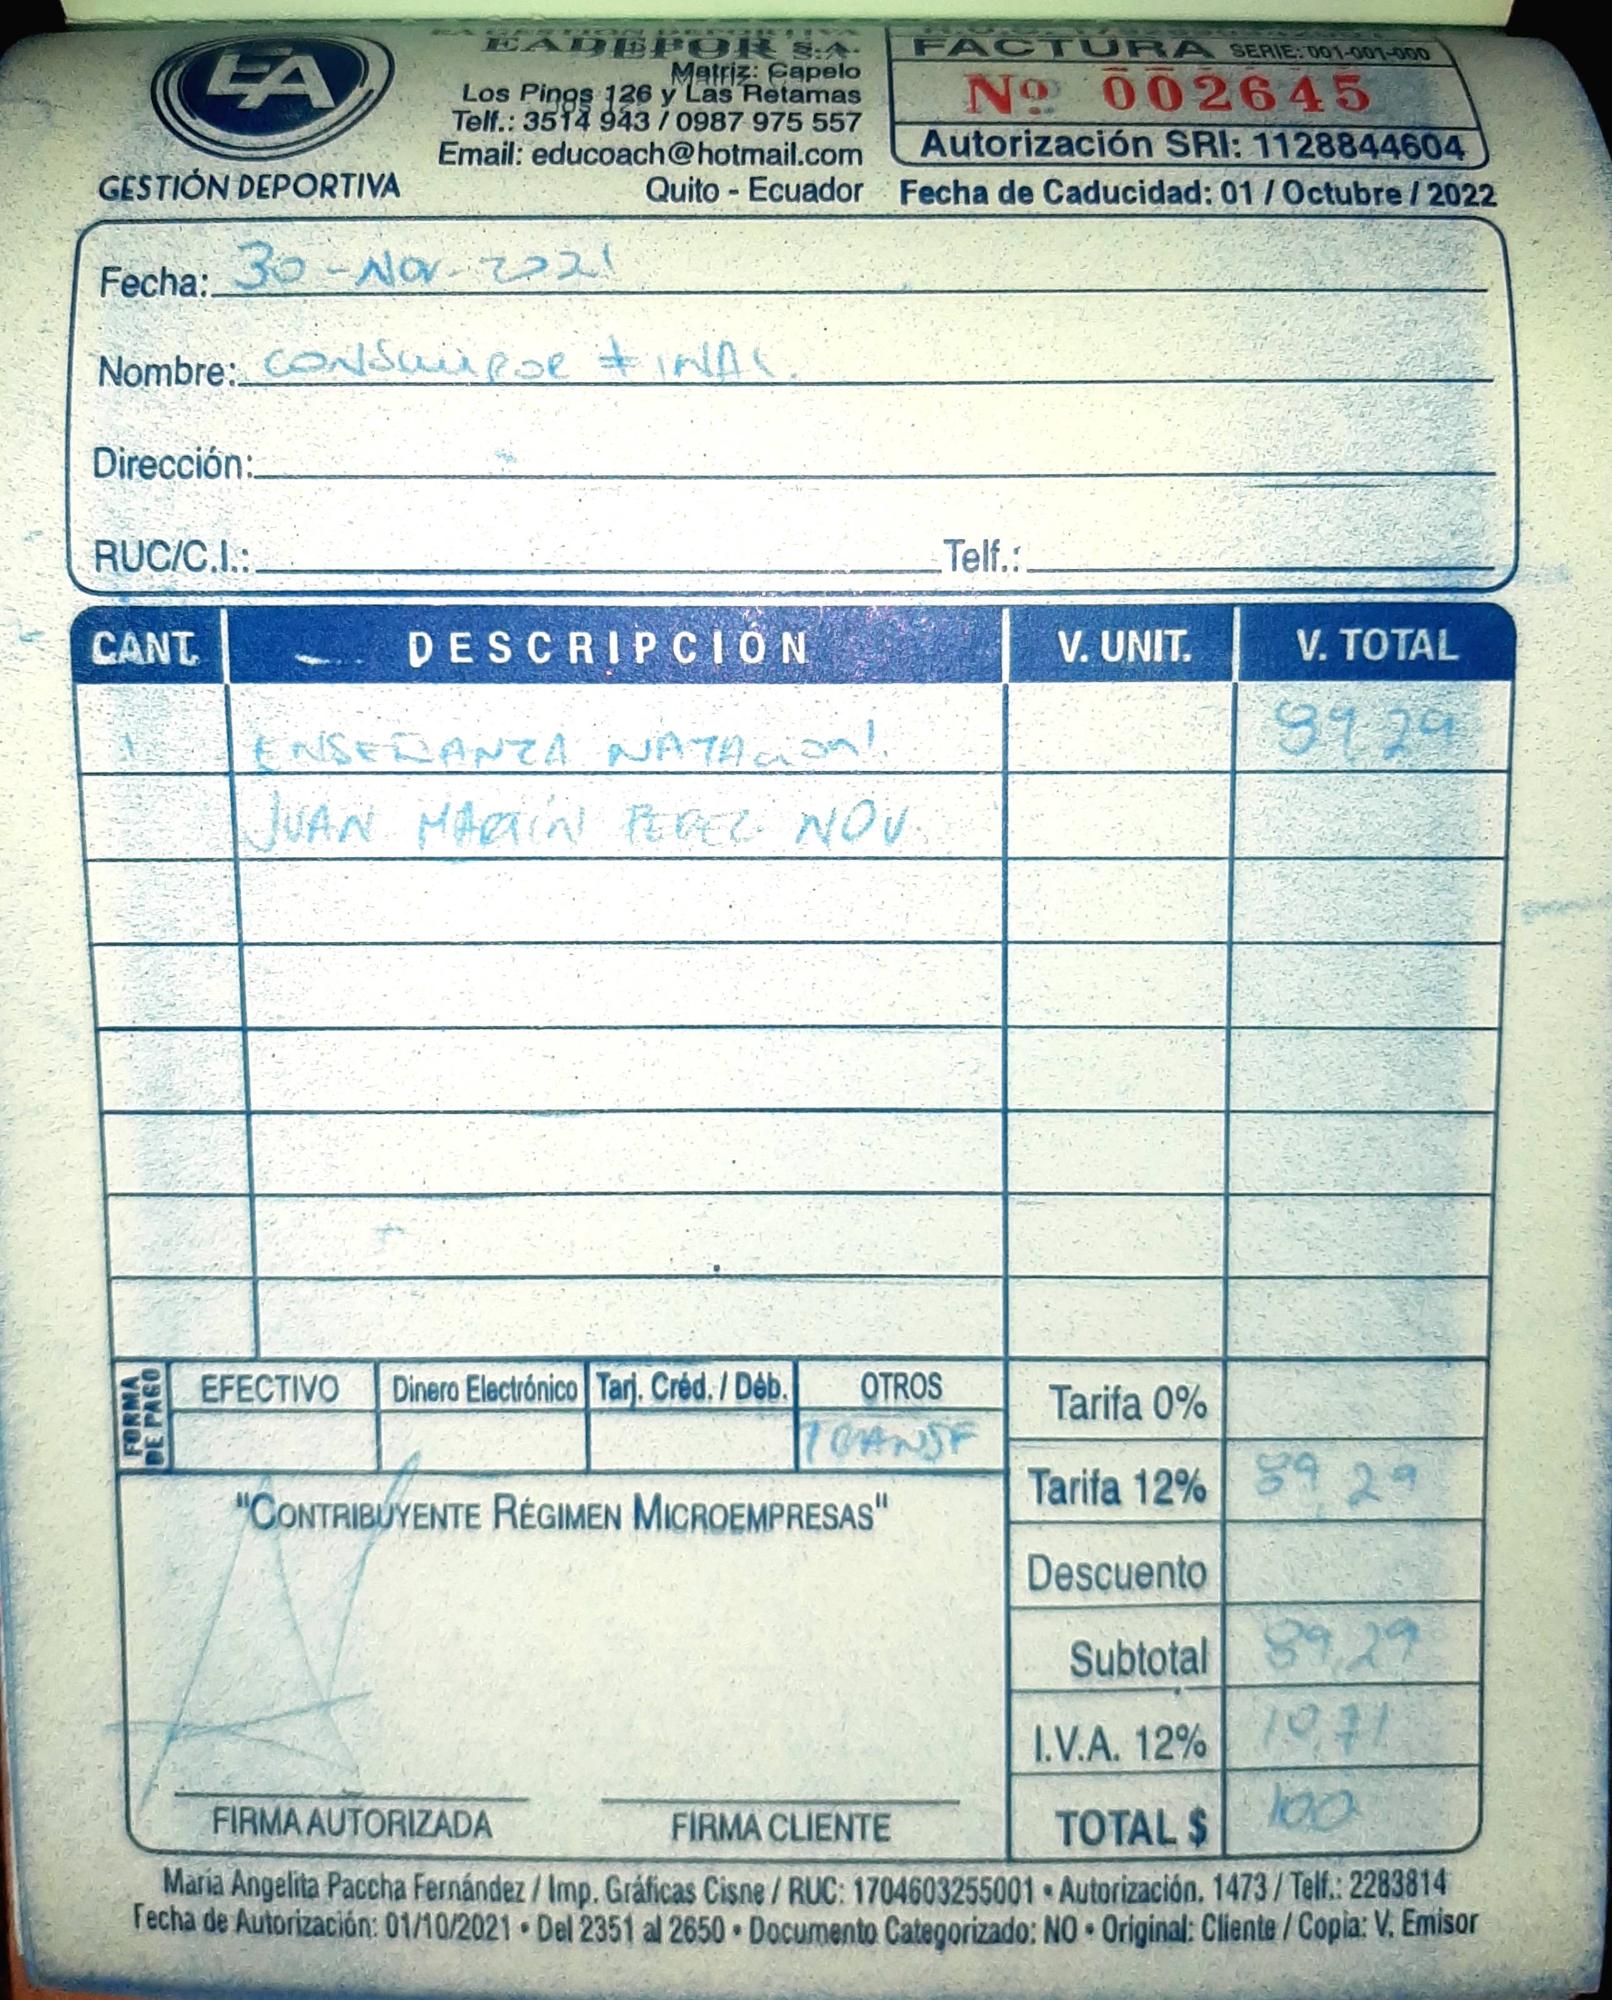 EA
GESTIÓN DEPORTIVA
EADEPOR S.A.
Matriz: Capelo
Los Pinos 126 y Las Retamas
Telf.: 3514 943 / 0987 975 557
Email: educoach@hotmail.com
Quito - Ecuador
FACTURA SERIE: 001-001-000
Nº 002645
Autorización SRI: 1128844604
Fecha de Caducidad: 01 / Octubre / 2022
Fecha: 30-Nov-2021
Nombre: CONSUMIDOR FINAL.
Dirección:
RUC/C.I.: Telf.:
CANT. DESCRIPCIÓN V. UNIT. V. TOTAL
1 ENSEÑANZA NATACION 89,29
JUAN MARTÍN PEREZ NOV.
FORMA DE PAGO
EFECTIVO Dinero Electrónico Tarj. Créd. / Déb. OTROS
TRANSF
Tarifa 0%
Tarifa 12% 89,29
Descuento
Subtotal 89,29
I.V.A. 12% 10,71
TOTAL $ 100
"CONTRIBUYENTE RÉGIMEN MICROEMPRESAS"
FIRMA AUTORIZADA FIRMA CLIENTE
María Angelita Paccha Fernández / Imp. Gráficas Cisne / RUC: 1704603255001 • Autorización. 1473 / Telf.: 2283814
Fecha de Autorización: 01/10/2021 • Del 2351 al 2650 • Documento Categorizado: NO • Original: Cliente / Copia: V. Emisor